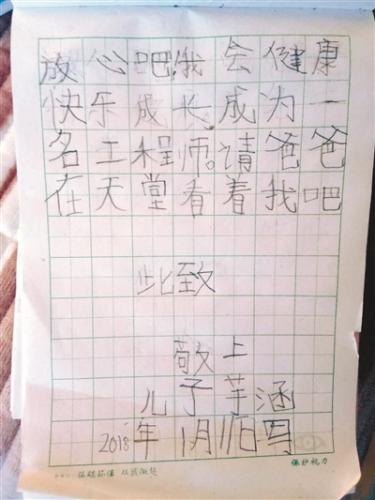 放心吧!我会健康
快乐成长,成为一
名工程师。请爸爸
在天堂看着我吧
此致
敬上
儿子芊涵
2018年1月11日
从我做起 保护视力